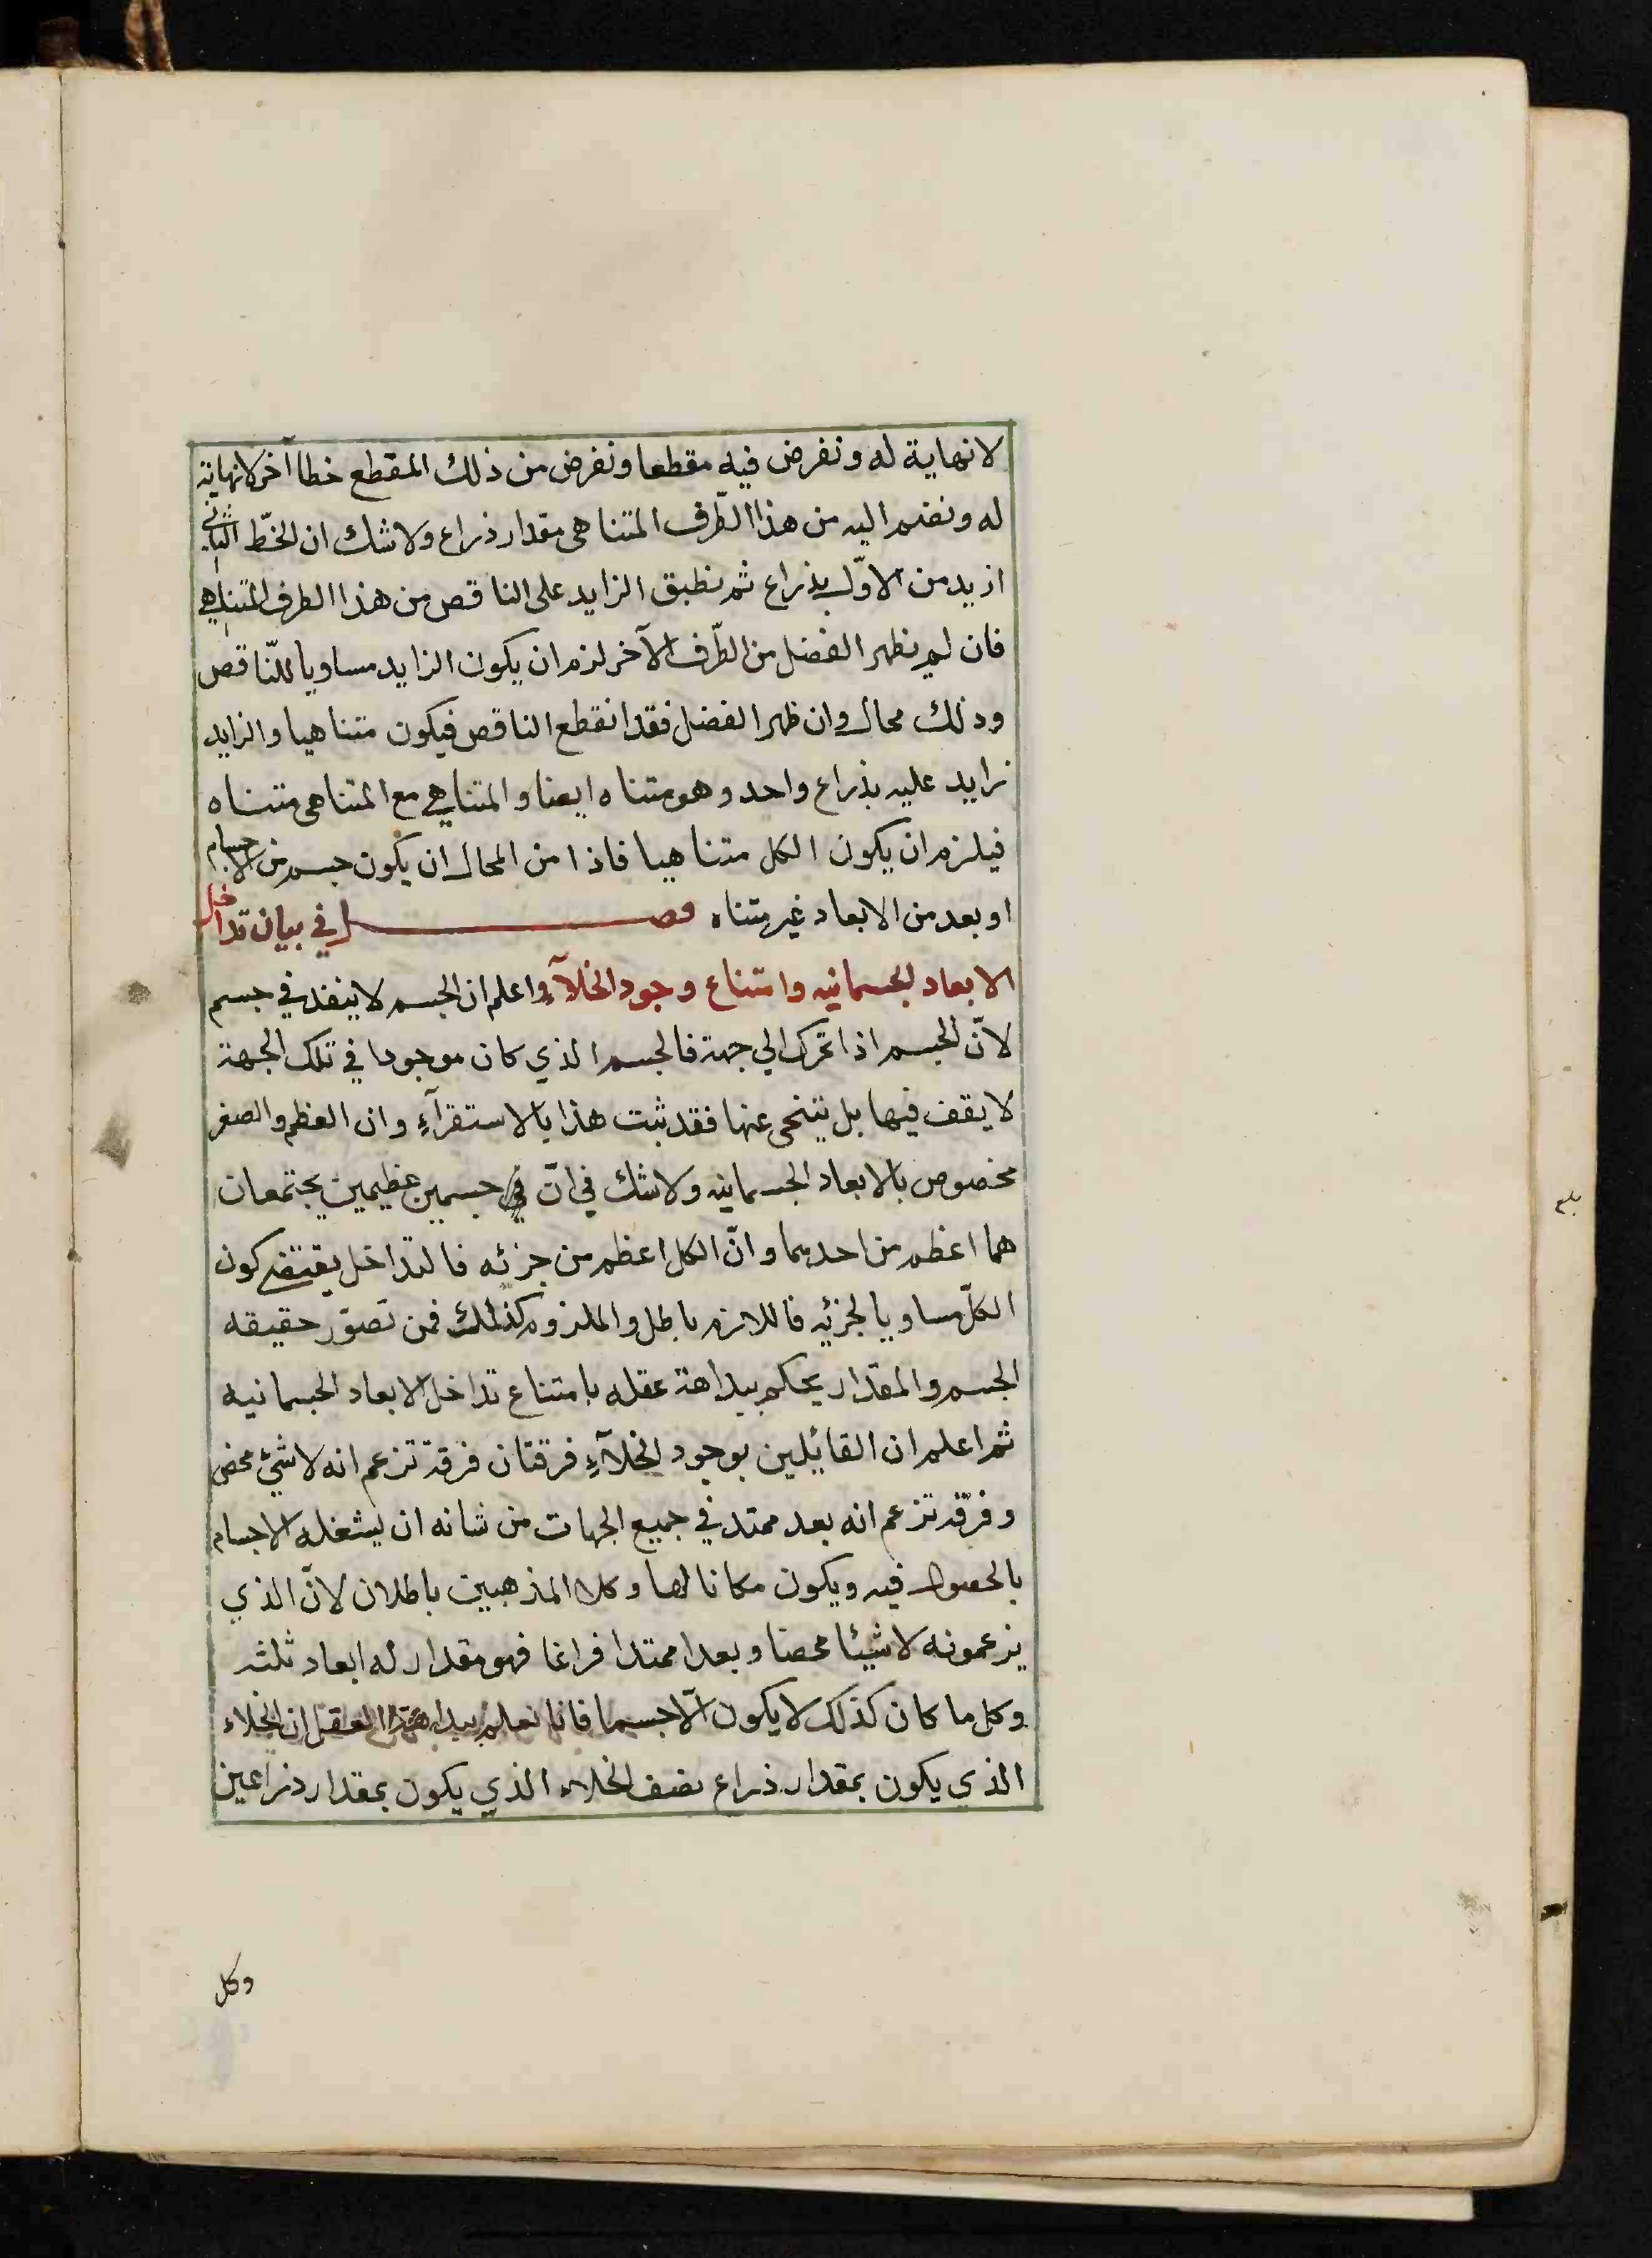 لا نهاية له ونفرض فيه مقطعا ونفرض من ذلك المقطع خطا آخر لا نهاية
له ونضم اليه من هذا الطّرف المتناهى مقدار ذراع ولا شك ان الخّط الثانى
ازيد من الاوّل بذراع ثم نطبق الزايد على الناقص من هذا الطرف المتناهي
فان لم يظهر الفضل من الطّرف الآخر لزم ان يكون الزايد مساويا للنّاقص
وذلك محال وان ظهر الفضل فقد انقطع الناقص فيكون متناهيا والزايد
زايد عليه بذراع واحد وهو متناه ايضا والمتناهي مع المتناهى متناه
فيلزم ان يكون الكل متناهيا فاذا من المحال ان يكون جسم من الاجسام
او بعد من الابعاد غير متناه فصل في بيان تداخل
الابعاد الجسمانيه وامتناع وجود الخلآء واعلم ان الجسم لا ينفذ في جسم
لانّ الجسم اذا تحرك الي جهة فالجسم الذي كان موجودا في تلك الجهة
لا يقف فيها بل يتنحى عنها فقد ثبت هذا بالاستقرآء وان العظم والصغر
مخصوص بالابعاد الجسمانيه ولا شك في انّ في جسمين عظيمين يجتمعان
هما اعظم من احديهما وانّ الكل اعظم من جزئه فالتداخل يقتضي كون
الكلّ مساويا لجزئه فاللازم باطل والملزوم كذلك فمن تصوّر حقيقه
الجسم والمقدار يحكم ببداهة عقله بامتناع تداخل الابعاد الجسمانيه
ثم اعلم ان القائلين بوجود الخلآء فرقتان فرقة تزعم انه لا شئ محض
وفرقه تزعم انه بعد ممتد في جميع الجهات من شانه ان يشغله الاجسام
بالحصول فيه ويكون مكانا لها وكلا المذهبين باطلان لانّ الذي
يزعمونه لا شيئا محضا وبعدا ممتدا فراغا فهو مقدار له ابعاد ثلثه
وكل ما كان كذلك لا يكون الّا جسما فانا نعلم ببداهة العقل ان الخلاء
الذي يكون بمقدار ذراع نصف الخلاء الذي يكون بمقدار ذراعين
وكل